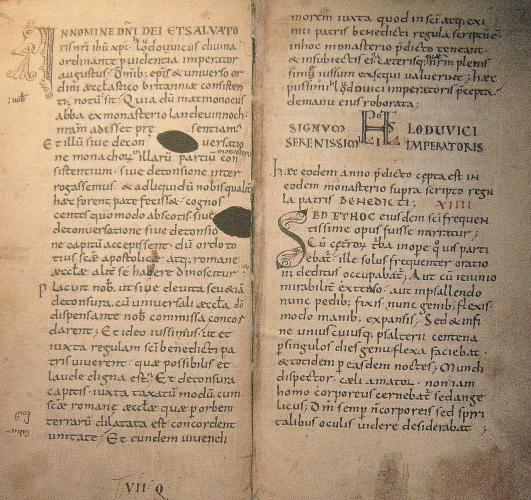 IN NOMINE DNI DEI ET SALVATO
ris nri ihu xpi. Lodouuicus diuina
ordinante prudentia imperator
augustus; Omib; epis & uniuerso or
dini aecclastico britanniae consisten
ti. notu sit. Quia du matmonocus
abba ex monasterio landeuuinnoch
nram adisset pre sentiam.
Et illu siue de con uersatio
ne monachoru illaru partiu con
sistentium. siue de tonsione inter
rogassemus. & ad liquidu nobis qualit
haec forent patefecisset; & cognos
centes quomodo ab scotis. siue
de conuersatione siue de tonsione
capitu accepissent. du ordo to
tius scae apostolicae atq. romanae
aecclae alit se habere dinoscitur
placuit nob. ut siue de uita seu & ia
de tonsura. cu uniuersali aeccla do
dispensante nob commissa concor
darent; Et ideo iussimus. ut et
iuxta regulam sci benedicti pa
tris uiuerent. quae possibilis et
laude digna est; Et de tonsura
capitis. iuxta taxatu modu cum
scae romanae aecclae quae p orbem
terraru dilatata est. concordent
unitate; Et eundem uiuendi
VII Q
morem iuxta quod in sci atq. exi
mii patris benedicti regula
in hoc monasterio pdicto teneant.
& in subiectis & ceteris nrm plenis
simu iussum exsequi ualuerint; haec
piissimi lodouici imperatoris pcepta.
de manu eius roborata;
SIGNUM HLODUVICI
SERENISSIMI IMPERATORIS
Haec eodem anno pdicto cepta est in
eodem monasterio supra scripto regu
la patris BENEDICTI; XIIII
SED ET HOC eiusdem sci frequen
tissime opus fuisse narratur;
Cu certoru uba inope quis parti
ebat. ille solus frequenter oratio
ni deditus occupabat; Aut cu ieiunio
mirabilit extenso. aut in psallendo
nunc pedib; fixis. nunc genib; flexis.
modo manib; expansis; Sed & infi
ne unius cuiusq; psalterii centena
p singulos dies genu flexa faciebat.
& totidem p easdem noctes; Mundi
dispector. caeli amator. non iam
homo corporeus cernebat. sed ange
licus; Dm semp n corporeis sed spri
talibus oculis uidere desiderabat;